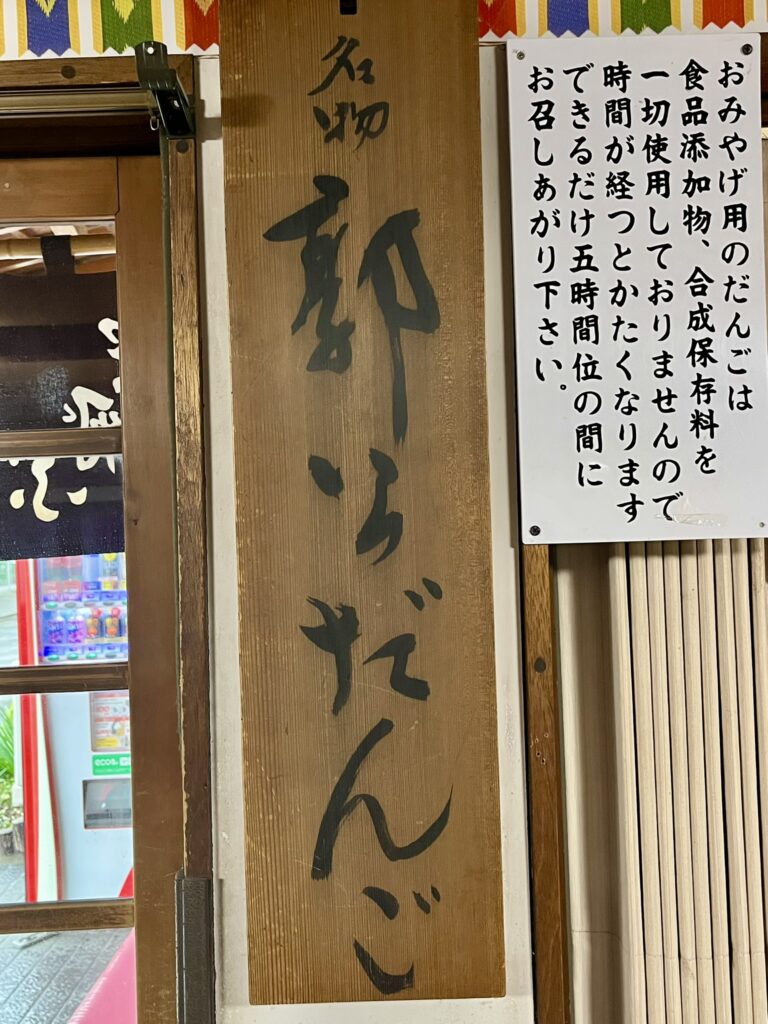 おみやげ用のだんごは
食品添加物、合成保存料を
一切使用しておりませんので
時間が経つとかたくなります
できるだけ五時間位の間に
お召しあがり下さい。
名物
郭公だんご
ecoる